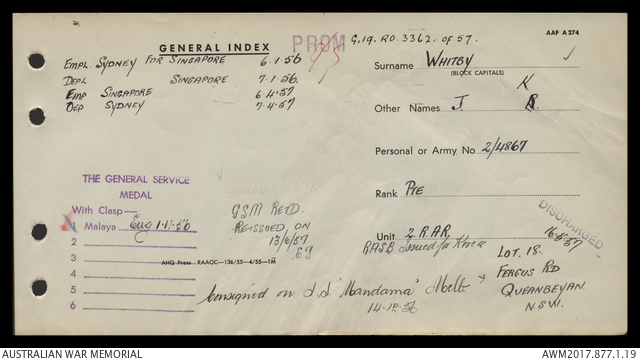 GENERAL INDEX
PROM
G.19. RO. 3362. OF 57.
AAF A 274
EMPL SYDNEY FOR SINGAPORE 6.1.56
DEPL SINGAPORE 7.1.56
EMP SINGAPORE 6.4.57
DEP SYDNEY 7.4.57
Surname WHITBY
(BLOCK CAPITALS)
K
Other Names J.
Personal or Army No 2/4867
Rank PTE
Unit 2 RAR
DISCHARGED
RASB Issued for Korea
LOT. 18.
FERGUS RD
QUEANBEYAN.
N.S.W.
THE GENERAL SERVICE
MEDAL
With Clasp—
1 Malaya
2
3
4
5
6
GSM RETD.
REISSUED ON
13/6/57
AHQ Press RAAOC—136/55—4/55—1M
Consigned on S.S. 'Mandama' Melb
14.12.56
AUSTRALIAN WAR MEMORIAL
AWM2017.877.1.19